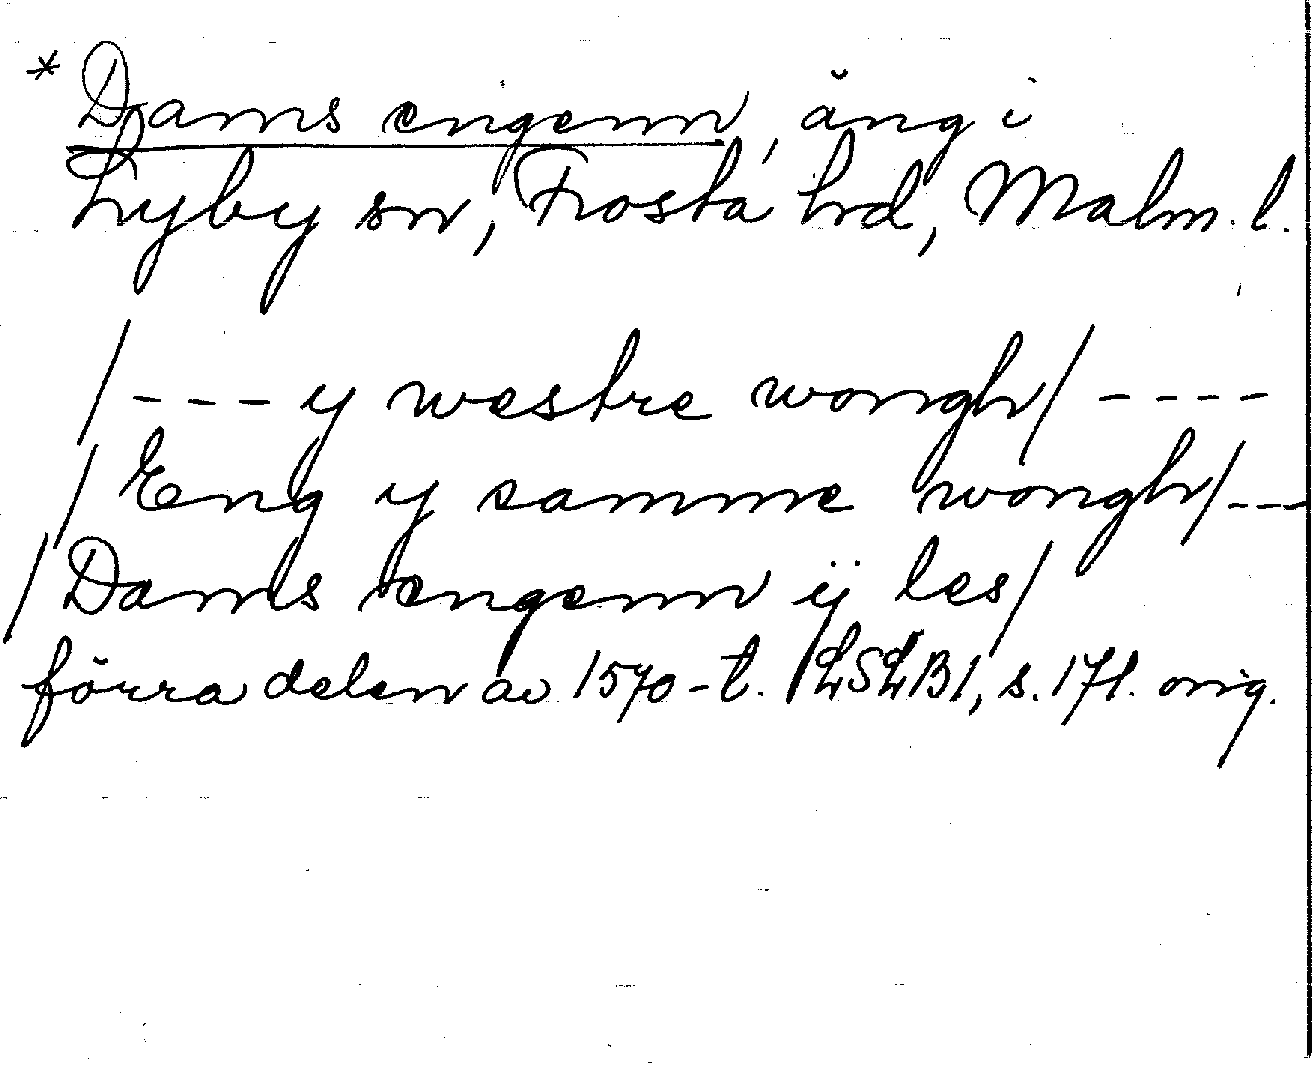 * Dams engenn, äng i
Lyby sn, Frosta hrd, Malm. l.
/ - - - y westre wongh / - - - -
/ Eng y samme wongh / - -
/ Dams engenn ij les /
förra delen av 1570-t. LSLB1, s. 171. orig.